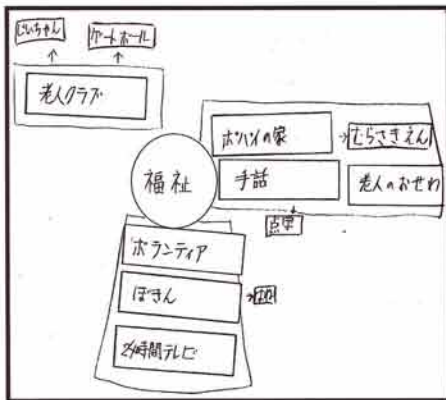 じいちゃん
ゲートボール
老人クラブ
むらさきえん
手話
老人のおせわ
福祉
点字
ボランティア
ぼきん
24時間テレビ